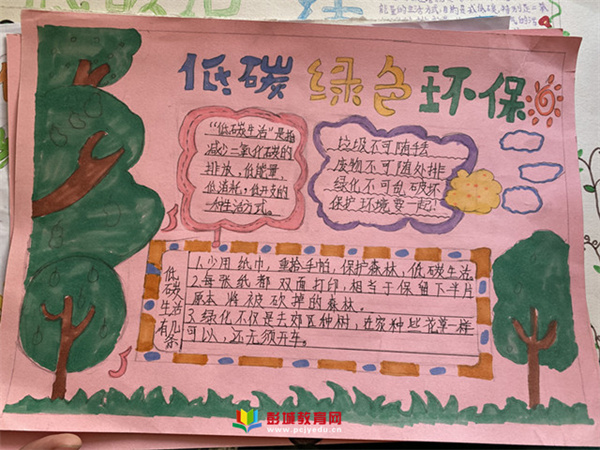 低碳 绿色 环保
"低碳生活"是指
减少二氧化碳的
排放,低能量,
低消耗,低开支的
一种生活方式。
垃圾不可随手丢
废物不可随处排
绿化不可乱破坏
保护环境要一起!
低碳生活有几条
1.少用纸巾,重拾手帕,保护森林,低碳生活
2.每张纸都双面打印,相当于保留下半片
原本将被砍掉的森林。
3.绿化不仅是去郊区种树,在家种些花草一样
可以,还无须开车。
彭城教育网
www.pcjyedu.cn